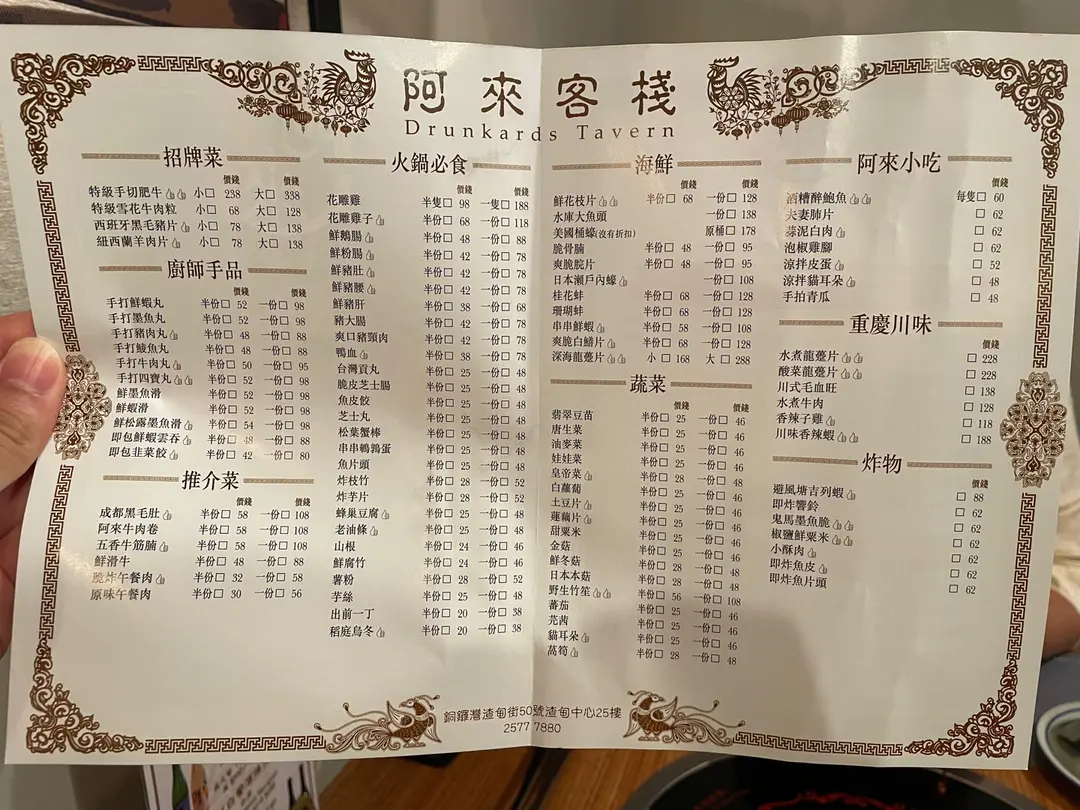 阿來客棧
Drunkards Tavern
招牌菜
價錢 價錢
特級手切肥牛 小□ 238 大□ 338
特級雪花牛肉粒 小□ 68 大□ 128
西班牙黑毛豬片 小□ 78 大□ 138
紐西蘭羊肉片 小□ 78 大□ 138
廚師手品
價錢 價錢
手打鮮蝦丸 半份□ 52 一份□ 98
手打墨魚丸 半份□ 52 一份□ 98
手打豬肉丸 半份□ 48 一份□ 88
手打鯪魚丸 半份□ 48 一份□ 88
手打牛肉丸 半份□ 50 一份□ 95
手打四寶丸 半份□ 52 一份□ 98
鮮墨魚滑 半份□ 52 一份□ 98
鮮蝦滑 半份□ 52 一份□ 98
鮮松露墨魚滑 半份□ 54 一份□ 98
即包鮮蝦雲吞 半份□ 48 一份□ 88
即包韭菜餃 半份□ 42 一份□ 80
推介菜
價錢 價錢
成都黑毛肚 半份□ 58 一份□ 108
阿來牛肉卷 半份□ 58 一份□ 108
五香牛筋腩 半份□ 58 一份□ 108
鮮滑牛 半份□ 48 一份□ 88
脆炸午餐肉 半份□ 32 一份□ 58
原味午餐肉 半份□ 30 一份□ 56
火鍋必食
價錢 價錢
花雕雞 半隻□ 98 一隻□ 188
花雕雞子 半份□ 68 一份□ 118
鮮鵝腸 半份□ 48 一份□ 88
鮮粉腸 半份□ 42 一份□ 78
鮮豬肚 半份□ 42 一份□ 78
鮮豬腰 半份□ 42 一份□ 78
鮮豬肝 半份□ 38 一份□ 68
豬大腸 半份□ 42 一份□ 78
爽口豬頸肉 半份□ 42 一份□ 78
鴨血 半份□ 38 一份□ 78
台灣貢丸 半份□ 25 一份□ 48
脆皮芝士腸 半份□ 25 一份□ 48
魚皮餃 半份□ 25 一份□ 48
芝士丸 半份□ 25 一份□ 48
松葉蟹棒 半份□ 25 一份□ 48
串串鵪鶉蛋 半份□ 25 一份□ 48
魚片頭 半份□ 25 一份□ 48
炸枝竹 半份□ 28 一份□ 52
炸芋片 半份□ 28 一份□ 52
蜂巢豆腐 半份□ 25 一份□ 48
老油條 半份□ 25 一份□ 48
山根 半份□ 24 一份□ 46
鮮腐竹 半份□ 24 一份□ 46
薯粉 半份□ 28 一份□ 52
芋絲 半份□ 25 一份□ 48
出前一丁 半份□ 20 一份□ 38
稻庭烏冬 半份□ 20 一份□ 38
海鮮
價錢 價錢
鮮花枝片 半份□ 68 一份□ 128
水庫大魚頭 一份□ 138
美國桶蠔(沒有折扣) 原桶□ 178
脆骨腩 半份□ 48 一份□ 95
爽脆脘片 半份□ 48 一份□ 95
日本瀨戶內蠔 一份□ 108
桂花蚌 半份□ 68 一份□ 128
珊瑚蚌 半份□ 68 一份□ 128
串串鮮蝦 半份□ 58 一份□ 108
爽脆白鱔片 半份□ 68 一份□ 128
深海龍躉片 小□ 168 大□ 288
蔬菜
價錢 價錢
翡翠豆苗 半份□ 25 一份□ 46
唐生菜 半份□ 25 一份□ 46
油麥菜 半份□ 25 一份□ 46
娃娃菜 半份□ 25 一份□ 46
皇帝菜 半份□ 28 一份□ 48
白蘿蔔 半份□ 25 一份□ 46
土豆片 半份□ 25 一份□ 46
蓮藕片 半份□ 25 一份□ 46
甜粟米 半份□ 25 一份□ 46
金菇 半份□ 25 一份□ 46
鮮冬菇 半份□ 28 一份□ 48
日本本菇 半份□ 28 一份□ 48
野生竹笙 半份□ 56 一份□ 108
蕃茄 半份□ 25 一份□ 46
芫茜 半份□ 25 一份□ 46
貓耳朵 半份□ 25 一份□ 46
萵筍 半份□ 28 一份□ 48
阿來小吃
價錢
酒糟醉鮑魚 每隻□ 60
夫妻肺片 □ 62
蒜泥白肉 □ 62
泡椒雞腳 □ 62
涼拌皮蛋 □ 52
涼拌貓耳朵 □ 48
手拍青瓜 □ 48
重慶川味
價錢
水煮龍躉片 □ 228
酸菜龍躉片 □ 228
川式毛血旺 □ 138
水煮牛肉 □ 128
香辣子雞 □ 118
川味香辣蝦 □ 188
炸物
價錢
避風塘吉列蝦 □ 88
即炸響鈴 □ 62
鬼馬墨魚脆 □ 62
椒鹽鮮粟米 □ 62
小酥肉 □ 62
即炸魚皮 □ 62
即炸魚片頭 □ 62
銅鑼灣渣甸街50號渣甸中心25樓
2577 7880